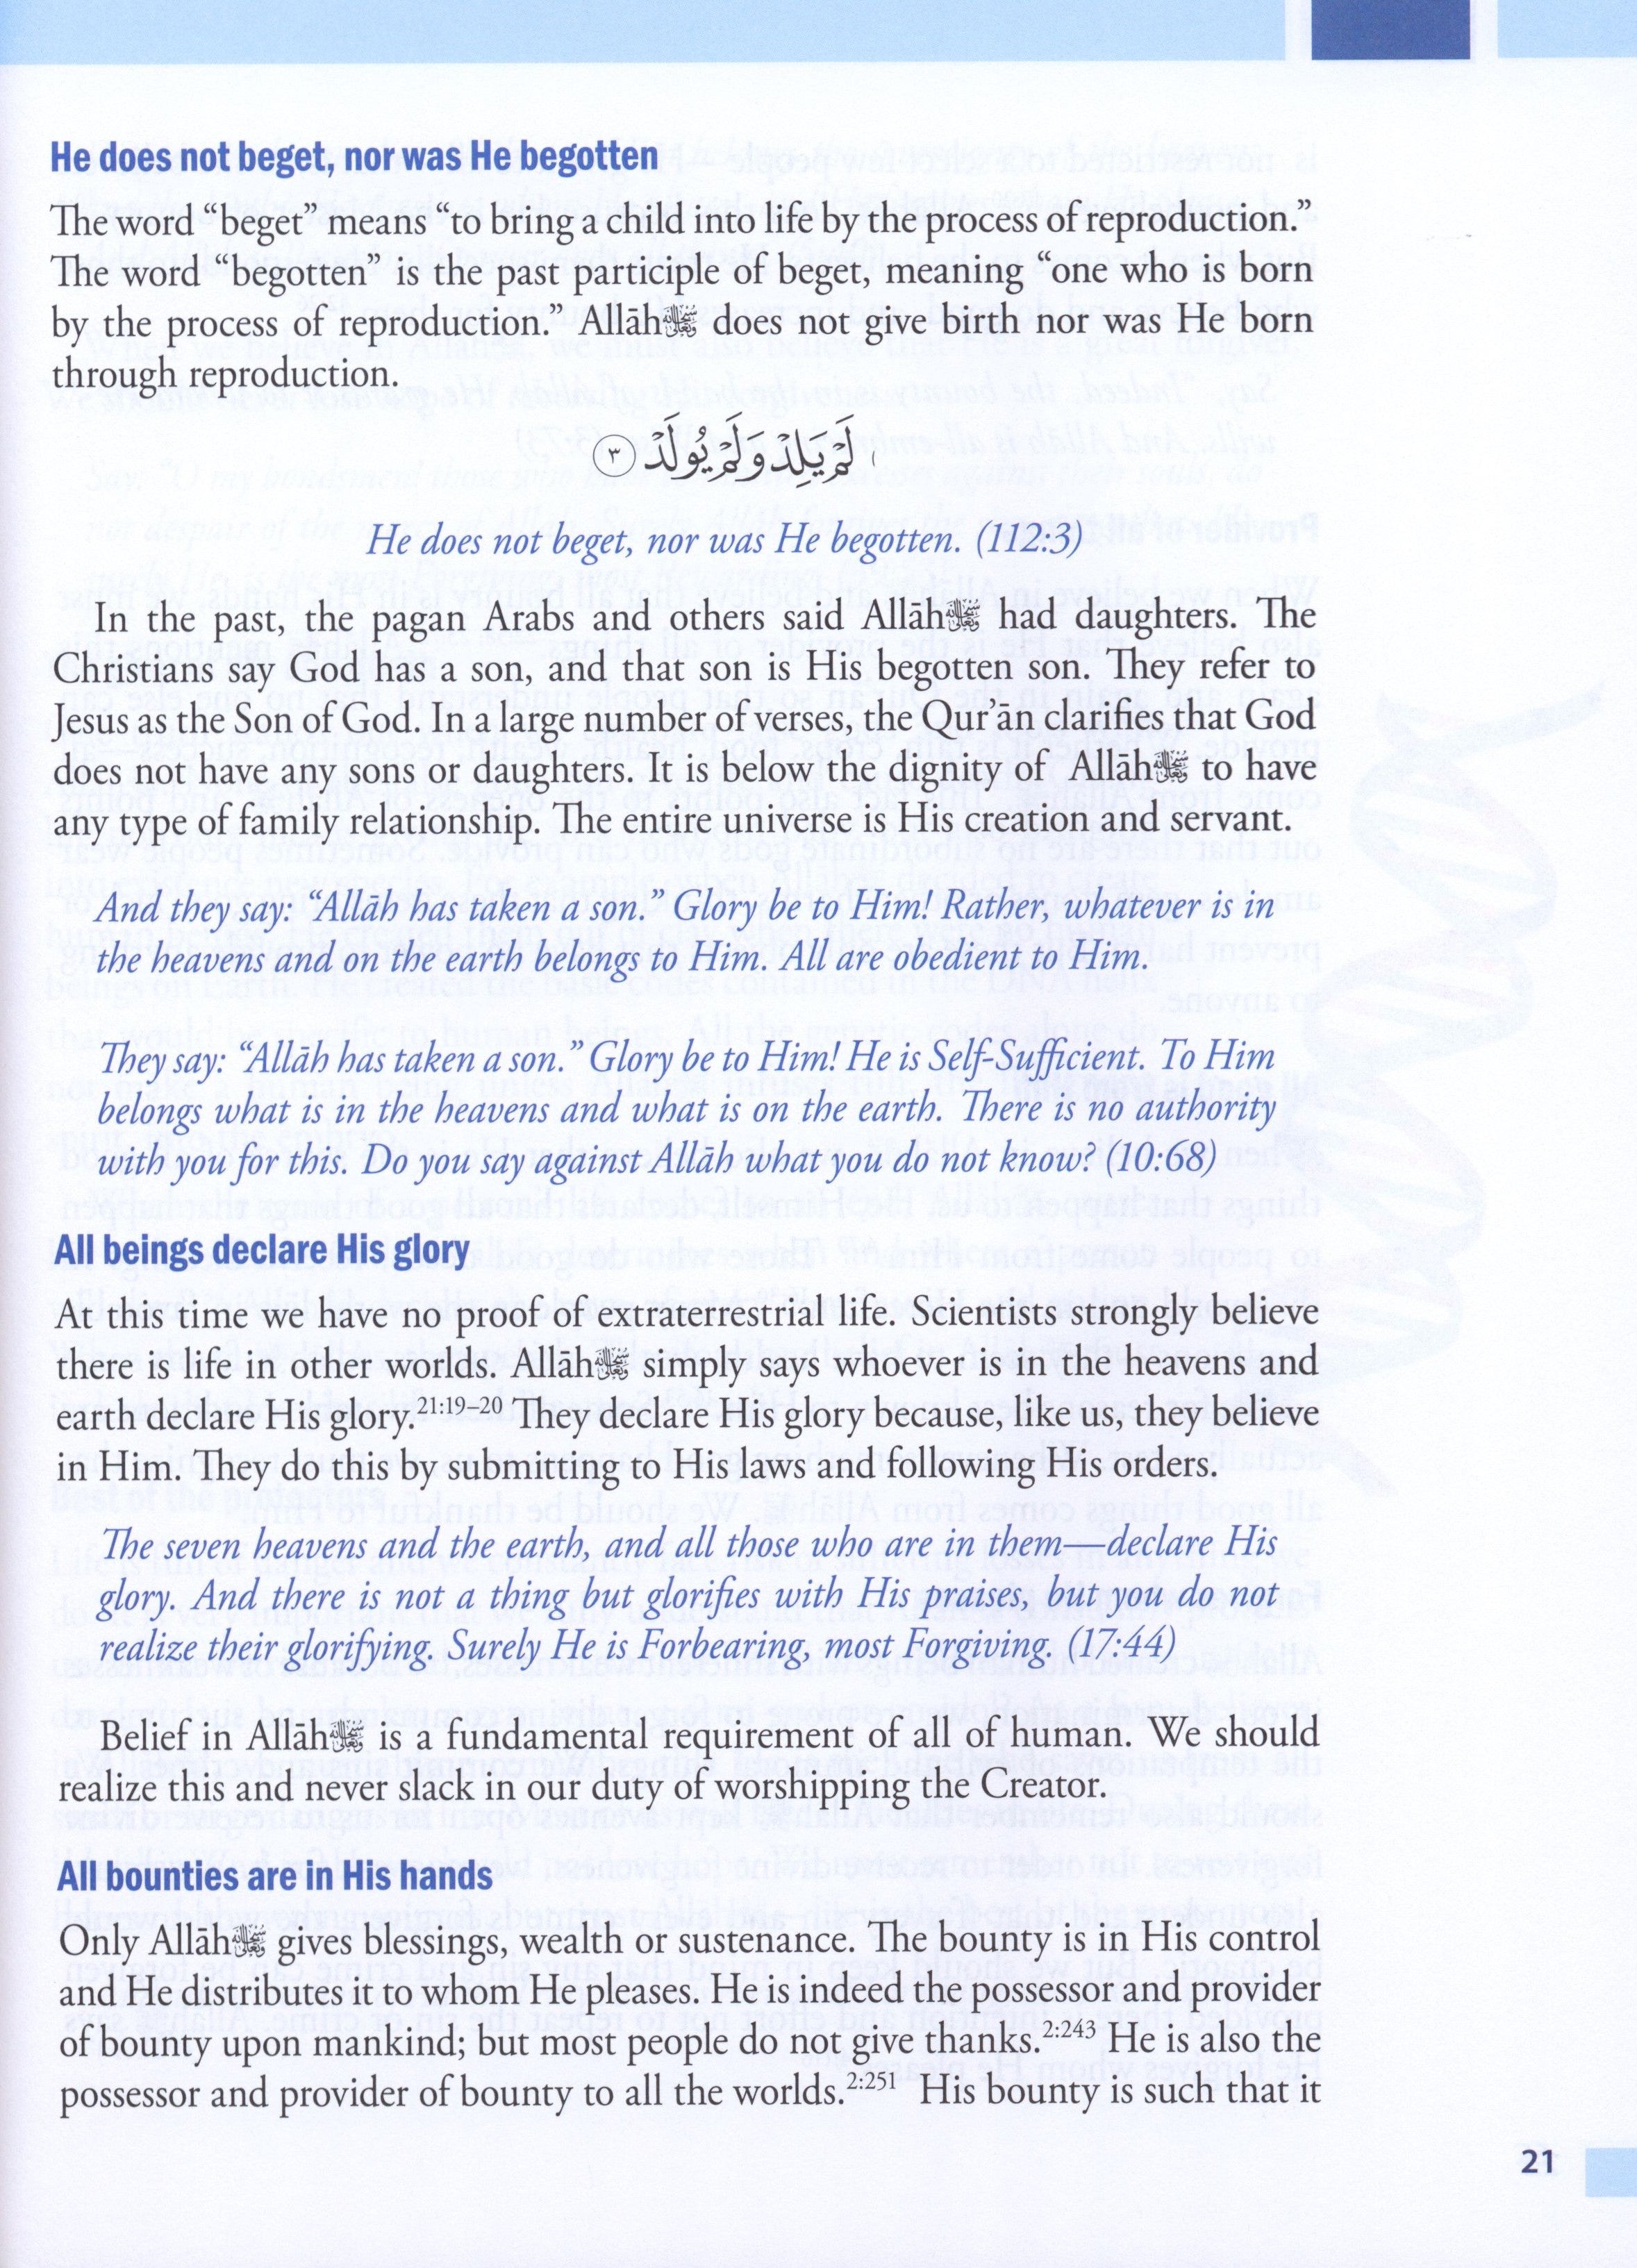 He does not beget, nor was He begotten
The word “beget” means “to bring a child into life by the process of reproduction.”
The word “begotten” is the past participle of beget, meaning “one who is born
by the process of reproduction.” Allāhﷻ does not give birth nor was He born
through reproduction.
لَمْ يَلِدْ وَلَمْ يُولَدْ ٣
He does not beget, nor was He begotten. (112:3)
In the past, the pagan Arabs and others said Allāh had daughters. The
Christians say God has a son, and that son is His begotten son. They refer to
Jesus as the Son of God. In a large number of verses, the Qur’ān clarifies that God
does not have any sons or daughters. It is below the dignity of Allāh to have
any type of family relationship. The entire universe is His creation and servant.
And they say: “Allāh has taken a son.” Glory be to Him! Rather, whatever is in
the heavens and on the earth belongs to Him. All are obedient to Him.
They say: “Allāh has taken a son.” Glory be to Him! He is Self-Sufficient. To Him
belongs what is in the heavens and what is on the earth. There is no authority
with you for this. Do you say against Allāh what you do not know? (10:68)
All beings declare His glory
At this time we have no proof of extraterrestrial life. Scientists strongly believe
there is life in other worlds. Allāh simply says whoever is in the heavens and
earth declare His glory.21:19–20 They declare His glory because, like us, they believe
in Him. They do this by submitting to His laws and following His orders.
The seven heavens and the earth, and all those who are in them—declare His
glory. And there is not a thing but glorifies with His praises, but you do not
realize their glorifying. Surely He is Forbearing, most Forgiving. (17:44)
Belief in Allāh is a fundamental requirement of all of human. We should
realize this and never slack in our duty of worshipping the Creator.
All bounties are in His hands
Only Allāh gives blessings, wealth or sustenance. The bounty is in His control
and He distributes it to whom He pleases. He is indeed the possessor and provider
of bounty upon mankind; but most people do not give thanks.2:243 He is also the
possessor and provider of bounty to all the worlds.2:251 His bounty is such that it
21